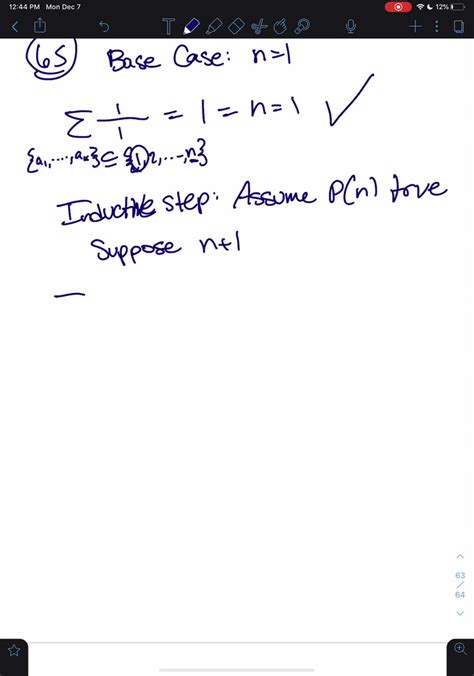 12:44 PM Mon Dec 7 12%
65 Base Case: n=1
∑ 1/1 = 1 = n = 1 ✓
{a₁,...,aₖ} ⊆ {1,2,...,n}
Inductive step: Assume P(n) true
Suppose n+1
—
63
/
64